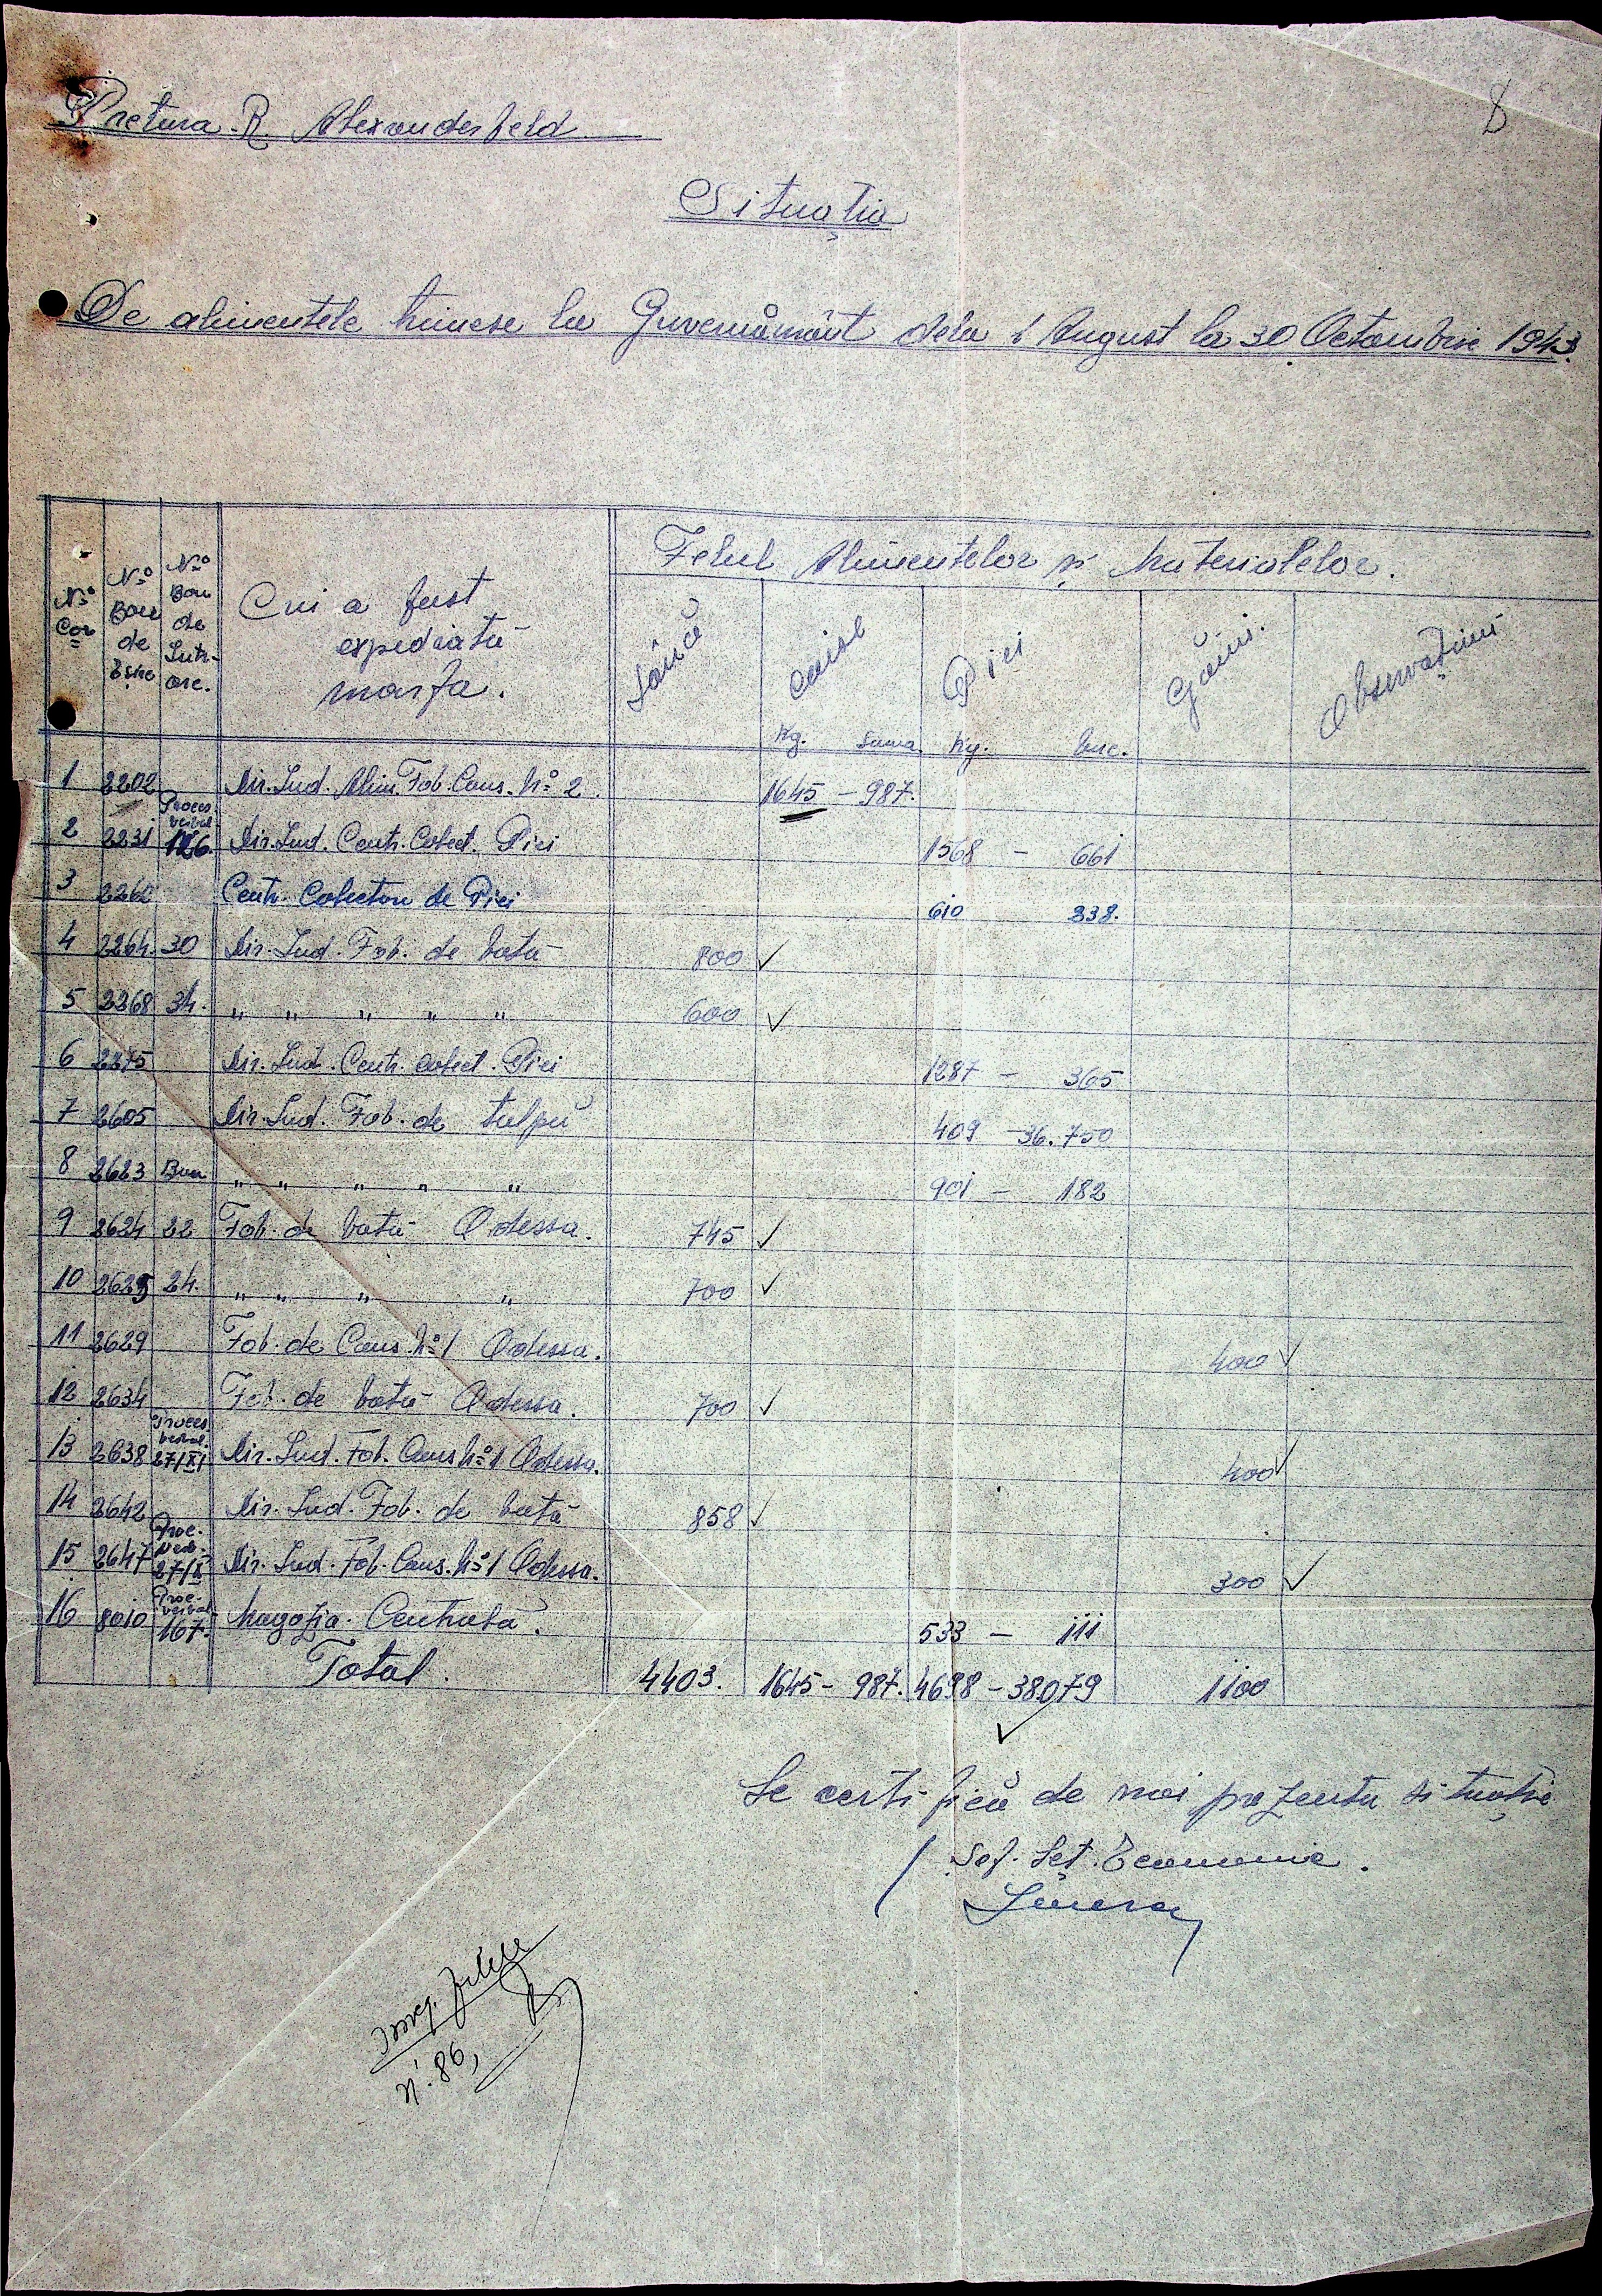 Pretura R. Alexanderfeld
8
Situația
De alimentele trimese la Guvernământ dela 1 August la 30 Octombrie 1943.
Felul Alimentelor și Materialelor.
No Cor
No Bon de Eșire
No Bon de Intrare.
Cui a fost expediată marfa.
Lână
Caise
Piei
Găini.
Observațiuni
Kg. Suma Kg. buc.
1 2202 Dir. Ind. Alim. Fab. Cons. No 2. 1645 - 987.
2 2231 Proces verbal 126. Dir. Ind. Centr. Colect. Piei 1568 - 661
3 2260 Centr. Colectare de Piei 610 238.
4 2264. 30 Dir. Ind. Fab. de vată 800 ✓
5 2268 34. " " " " " 600 ✓
6 2275 Dir. Ind. Centr. colect. Piei 1287 - 365
7 2605 Dir. Ind. Fab. de talpă 409 - 36.750
8 2623 Bon " " " " " 901 - 182
9 2624 22 Fab. de vată Odessa. 745 ✓
10 2625 24. " " " " 700 ✓
11 2629 Fab. de Cons. No 1 Odessa. 400 ✓
12 2634 Fab. de vată Odessa. 700 ✓
13 2638 Proces verbal. 27/XI Dir. Ind. Fab. Cons No 1 Odessa. 400 ✓
14 2642 Dir. Ind. Fab. de vată 858 ✓
15 2647 Proc. Verb. 27/X Dir. Ind. Fab. Cons. No 1 Odessa. 300 ✓
16 8010 Proc. verbal 167. Magazia Centrală. 533 - 111
Total. 4403. 1645 - 987. 4698 - 38079 1100
✓
Se certifică de noi prezenta situație
/ Șef. Seț. Economic.
N. 86,